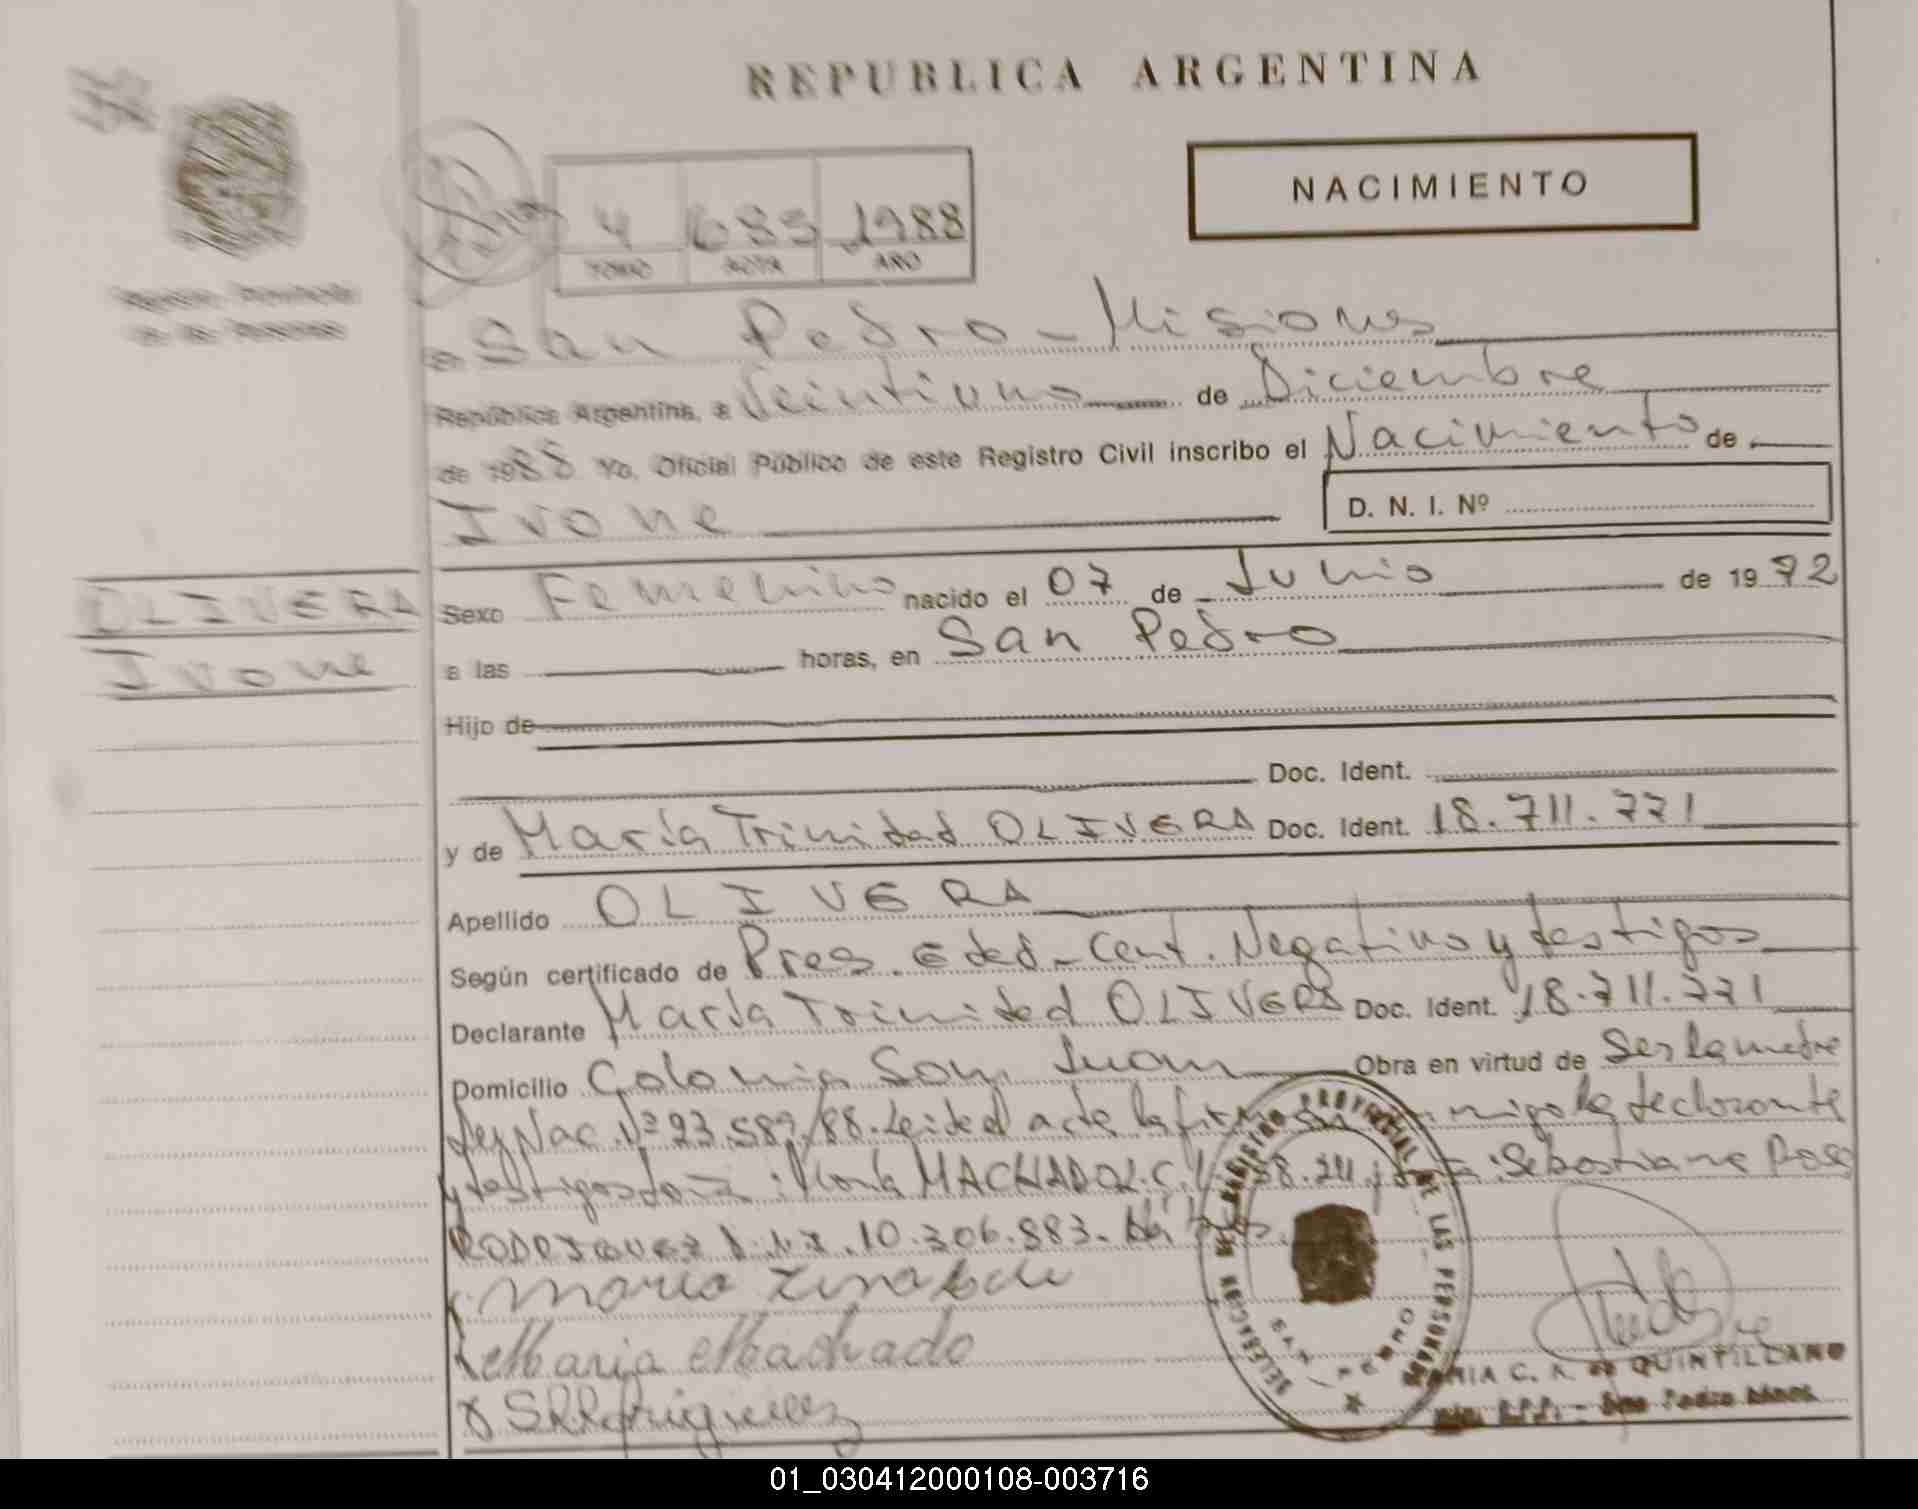 REPUBLICA ARGENTINA
NACIMIENTO
4 1988
TOMO ACTA AÑO
Registro Provincial
de las Personas
En San Pedro - Misiones
República Argentina, a Veintiuno de Diciembre
de 1988 Yo, Oficial Público de este Registro Civil inscribo el Nacimiento de
Ivone
D. N. I. Nº
OLIVERA
Ivone
Sexo Femenino nacido el 07 de Junio de 1972
a las horas, en San Pedro
Hijo de
Doc. Ident.
y de María Trinidad OLIVERA Doc. Ident. 18.711.771
Apellido OLIVERA
Según certificado de Pres. Edad - Cert. Negativo y testigos
Declarante María Trinidad OLIVERA Doc. Ident. 18.711.771
Domicilio Colonia San Juan Obra en virtud de Ser la madre
Ley Nac. Nº 23.589/88. Leída el acta la firman conmigo la declarante
y testigos doña: María MACHADO L.C. y doña: Sebastiana Rosa
RODRIGUEZ D.N.I. 10.306.883.
Maria
Maria Machado
S R Rodriguez
DELEGACION DEL REGISTRO PROVINCIAL DE LAS PERSONAS
MARIA C. R. de QUINTILLANO
San Pedro Mnes.
01_030412000108-003716